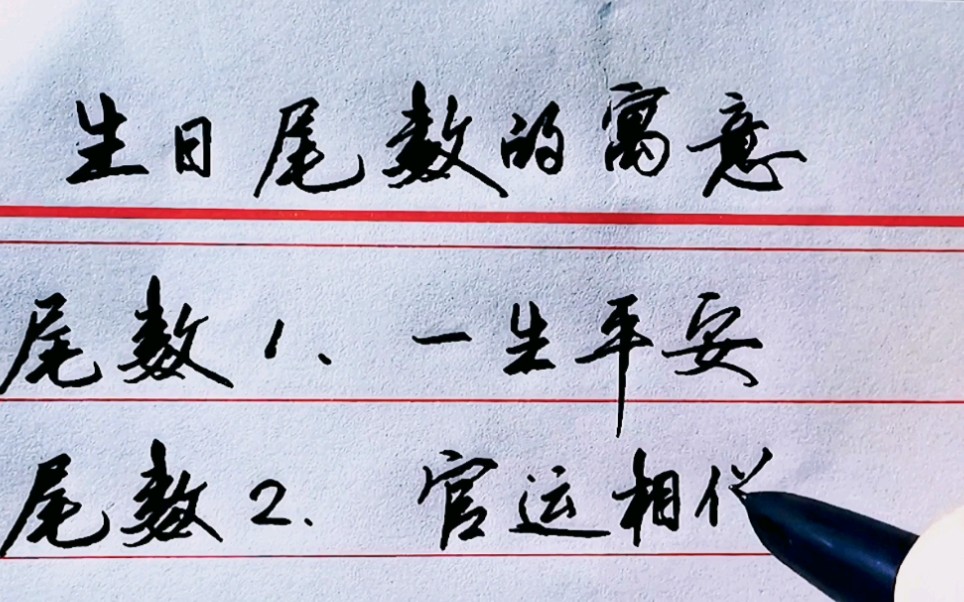 生日尾数的寓意
尾数1、一生平安
尾数2.官运相